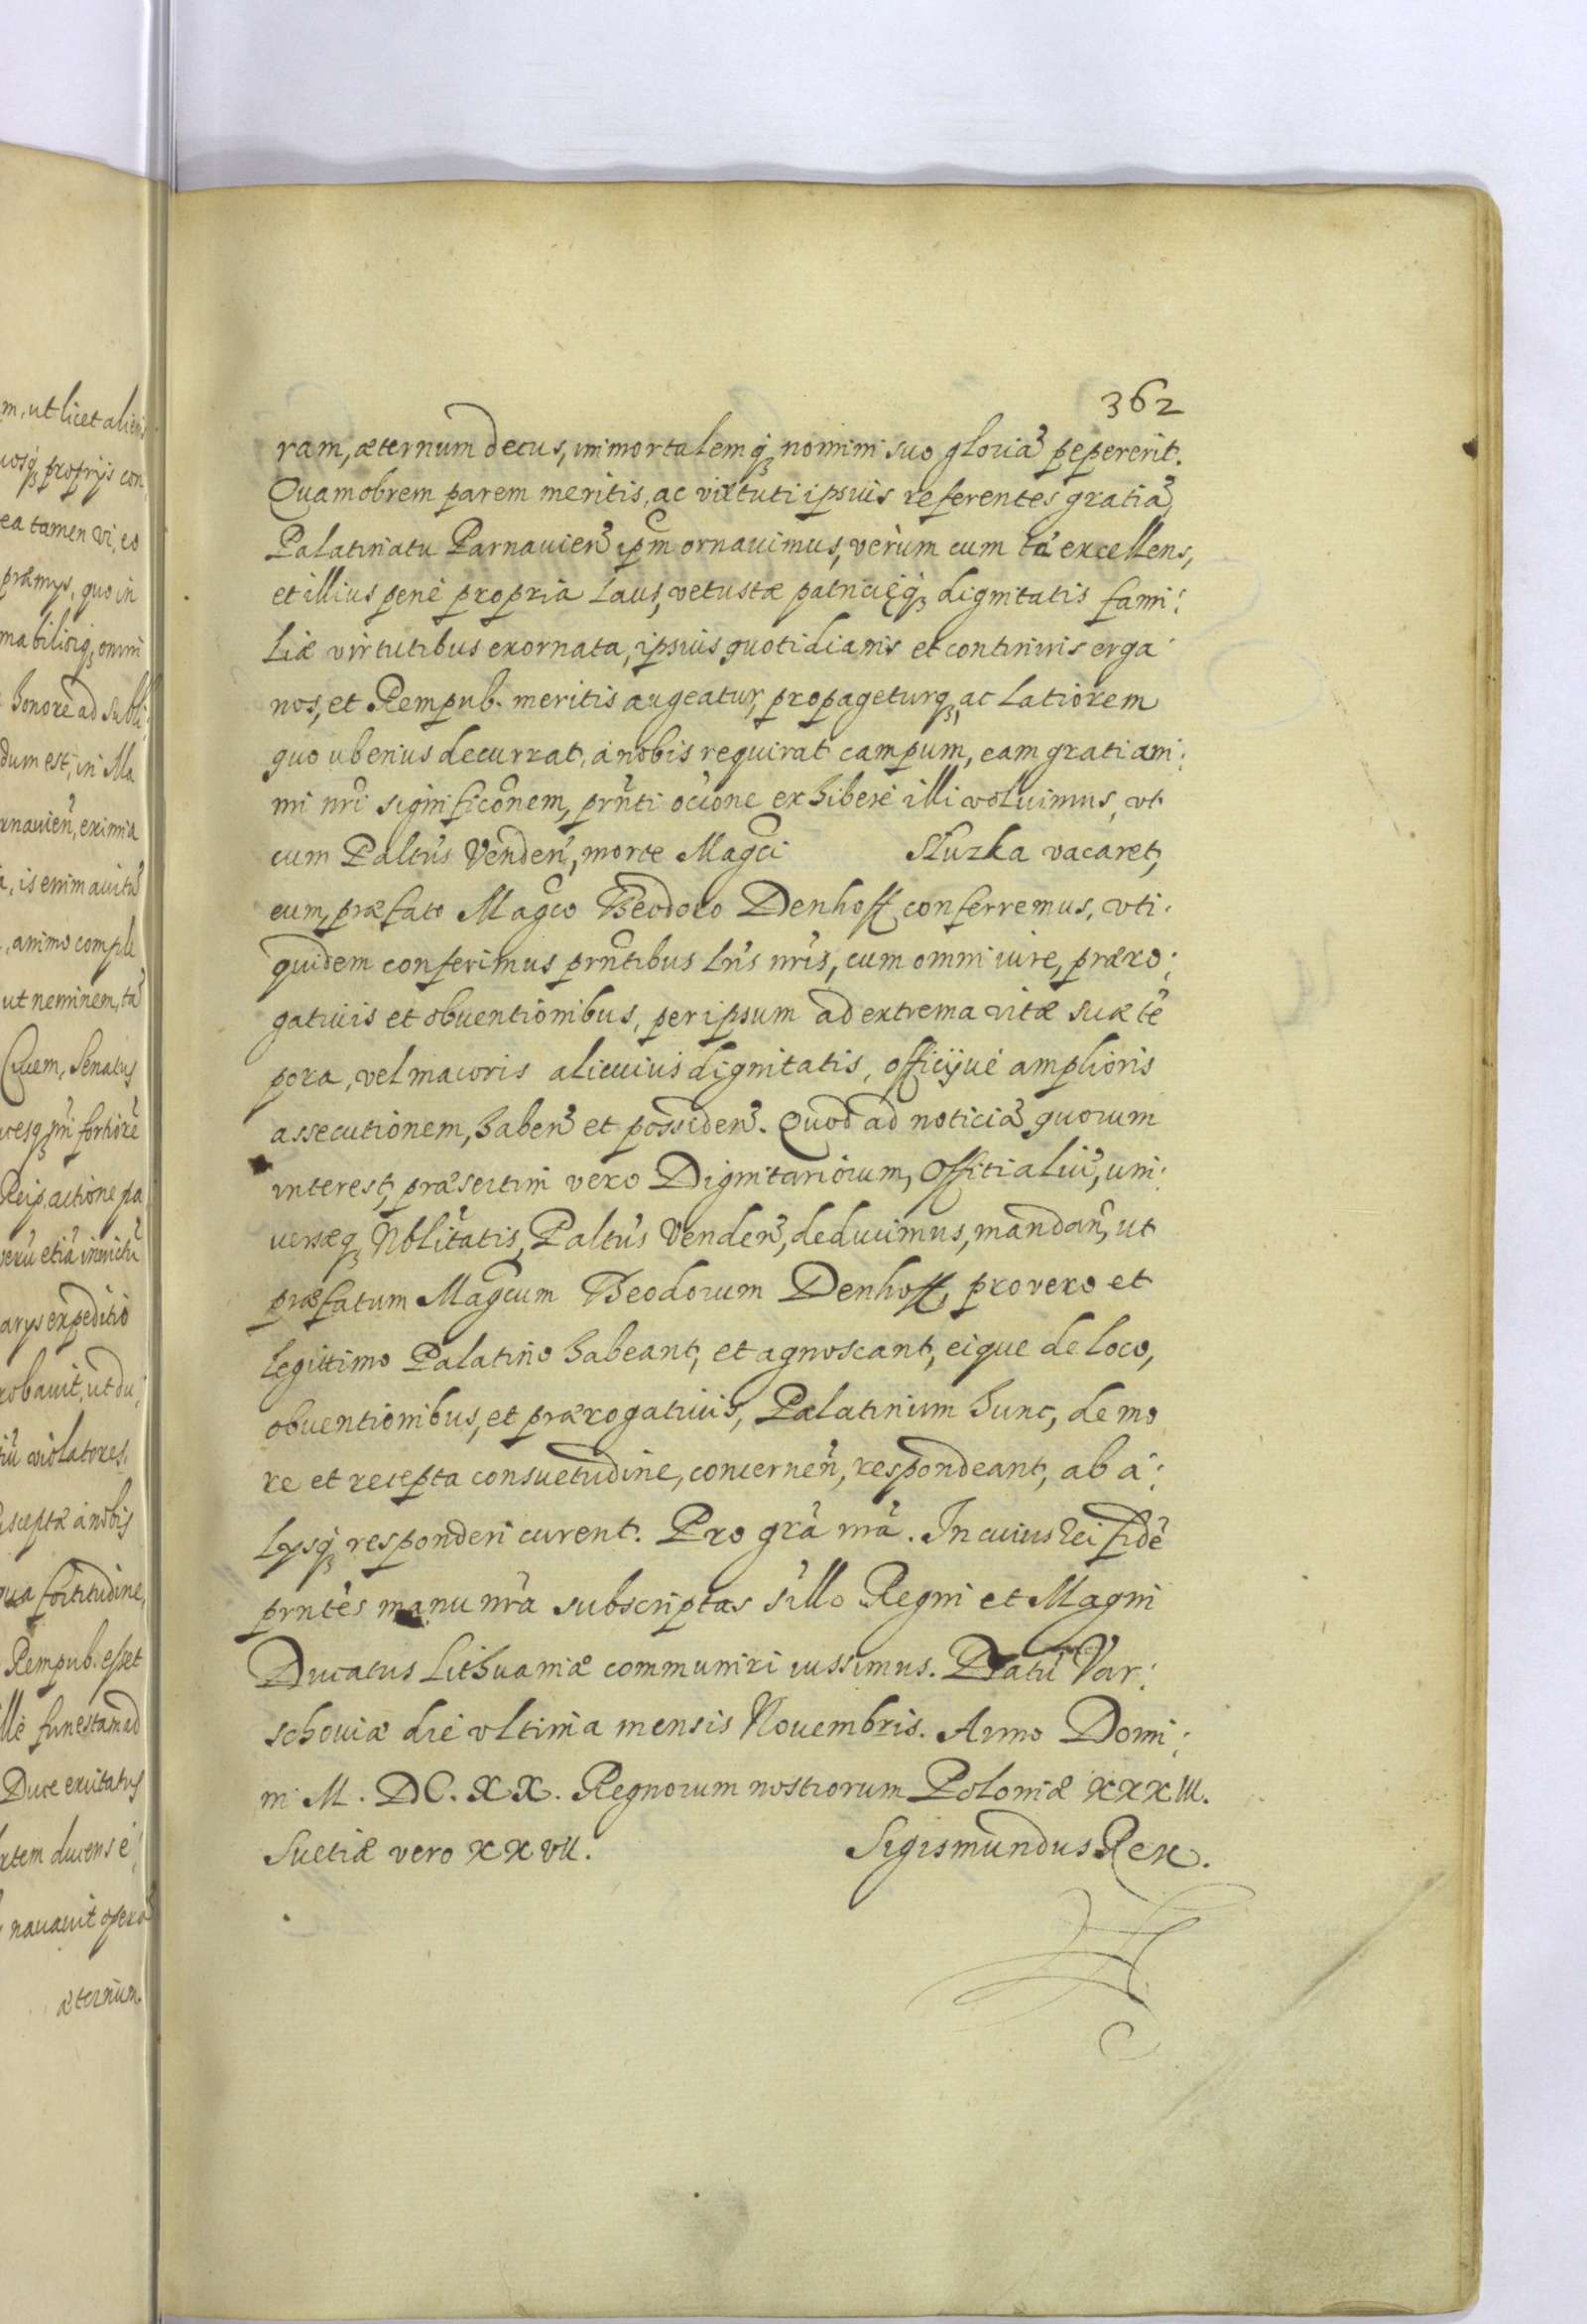 m, ut licet alieni
uosq₃ proprijs con
ea tamen vi, eo
præmys, quo in
mabilisiq₃ omni
honorē ad subli:
dum est, in Ma
rnauień, eximia
, is enim auitā
, animo comple
ut neminem, tā
Quem, Senatus
Reip. actione pa
verū etiā inimicū
arys expeditio
robauit, ut du:
violatores.
suscepta à nobis
qua fortitudine,
Rempub. esset
ille funestam ad
Duce excitatus
rtem ducens é
nauauit operā
æternum
362
ram, æternum decus, immortalemq₃ nomini suo gloriā pepererit.
Quamobrem parem meritis, ac virtuti ipsius referentes gratiā,
Palatinatu Parnauień ipm̄ ornauimus, verùm cum tā excellens,
et illius penè propria laus, vetustæ patricięq₃ dignitatis fami:
liæ virtutibus exornata, ipsius quotidianis et continuis erga
nos, et Rempub. meritis augeatur, propageturq₃, ac latiorem
quo uberius decurrat, à nobis requirat campum, eam grati ani:
mi nr̄i significōnem, prn̄ti ocīone exhibere illi voluimus, vt
cum Paltūs Vendeń, morte Magcī Sluzka vacaret,
eum, præfato Magco Theodoro Denhoff conferremus, vti:
quidem conferimus prn̄tibus lrīs nrīs, cum omni iure, præro:
gatiuis et obuentionibus, per ipsum ad extrema vitæ suæ tē
pora, vel maioris alicuius dignitatis, officijué amplioris
assecutionem, habeń et possideń. Quod ad noticiā quorum
interest, præsertim vero Dignitariorum, Officialiū, uni:
uersæq₃ Nblītatis, Paltūs Vendeń, deducimus, mandań, ut
præfatum Magcum Theodorum Denhoff, pro vero et
legittimo Palatino habeant, et agnoscant, eique de loco,
obuentionibus, et prærogatiuis, Palatinum hunc, de mo
re et recepta consuetudine, concerneń, respondeant, ab a:
lysq₃ responderi curent. Pro grā nrā. In cuius rei fidē
prntēs manu nrā subscriptas sīllo Regni et Magni
Ducatus Lithuaniæ communiri iussimus. Datū Var:
schouiæ die vltima mensis Nouembris. Anno Domi:
ni M. DC. XX. Regnorum nostrorum Poloniæ XXXIII.
Suetiæ vero XXVII. Sigismundus Rex.